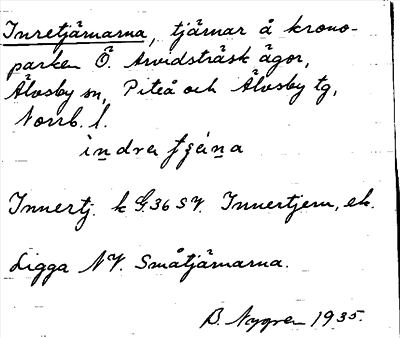 Inretjärnarna, tjärnar å krono-
parken Ö. Arvidsträsk ägor,
Älvsby sn, Piteå och Älvsby tg,
Norrb. l.
indra
Innertj. k G.36 SV. Innertjern, ek.
Ligga NV. Småtjärnarna.
B. Nygren 1935.